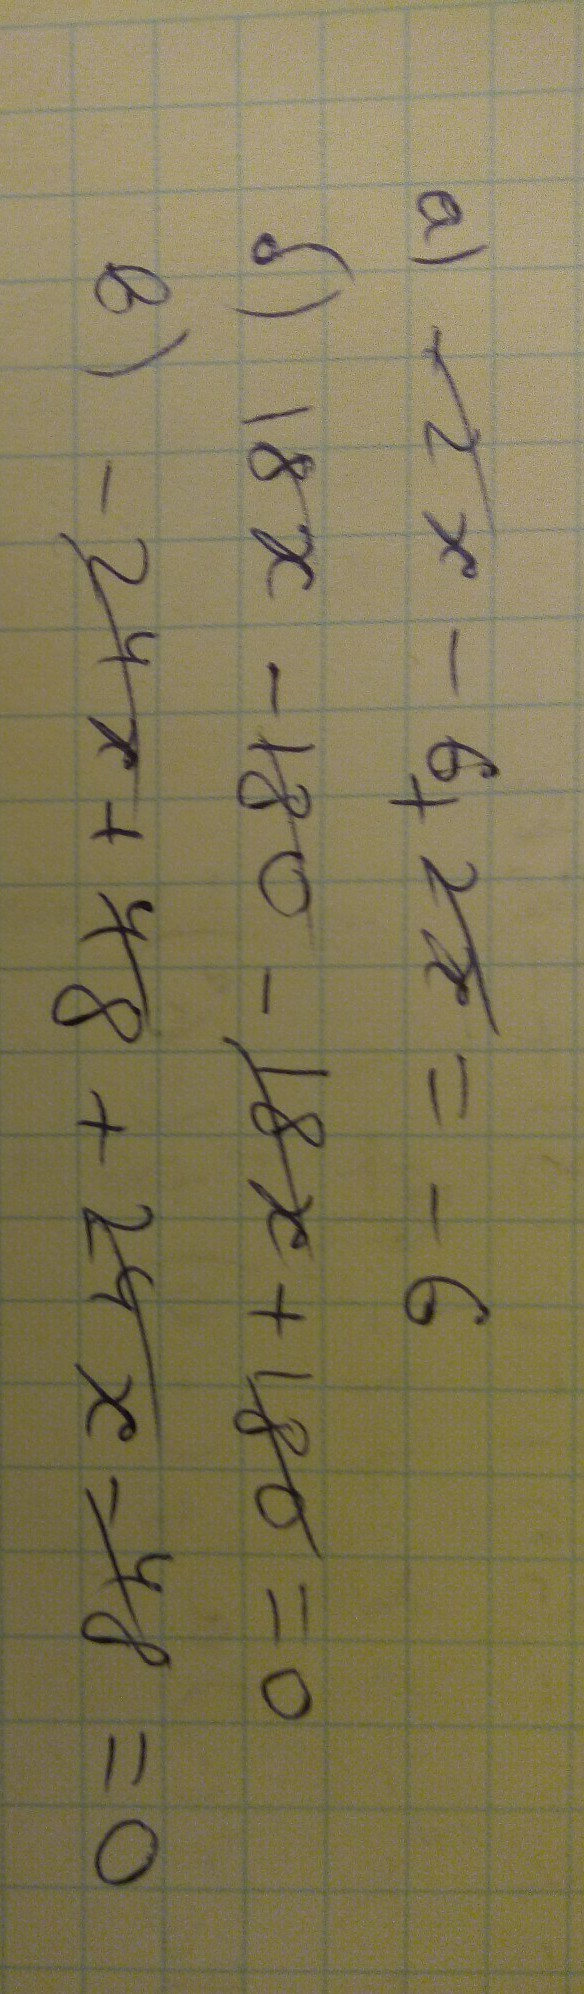 а) -2x - 6 + 2x = - 6
б) 18x - 180 - 18x + 180 = 0
в) - 24x + 48 + 24x - 48 = 0